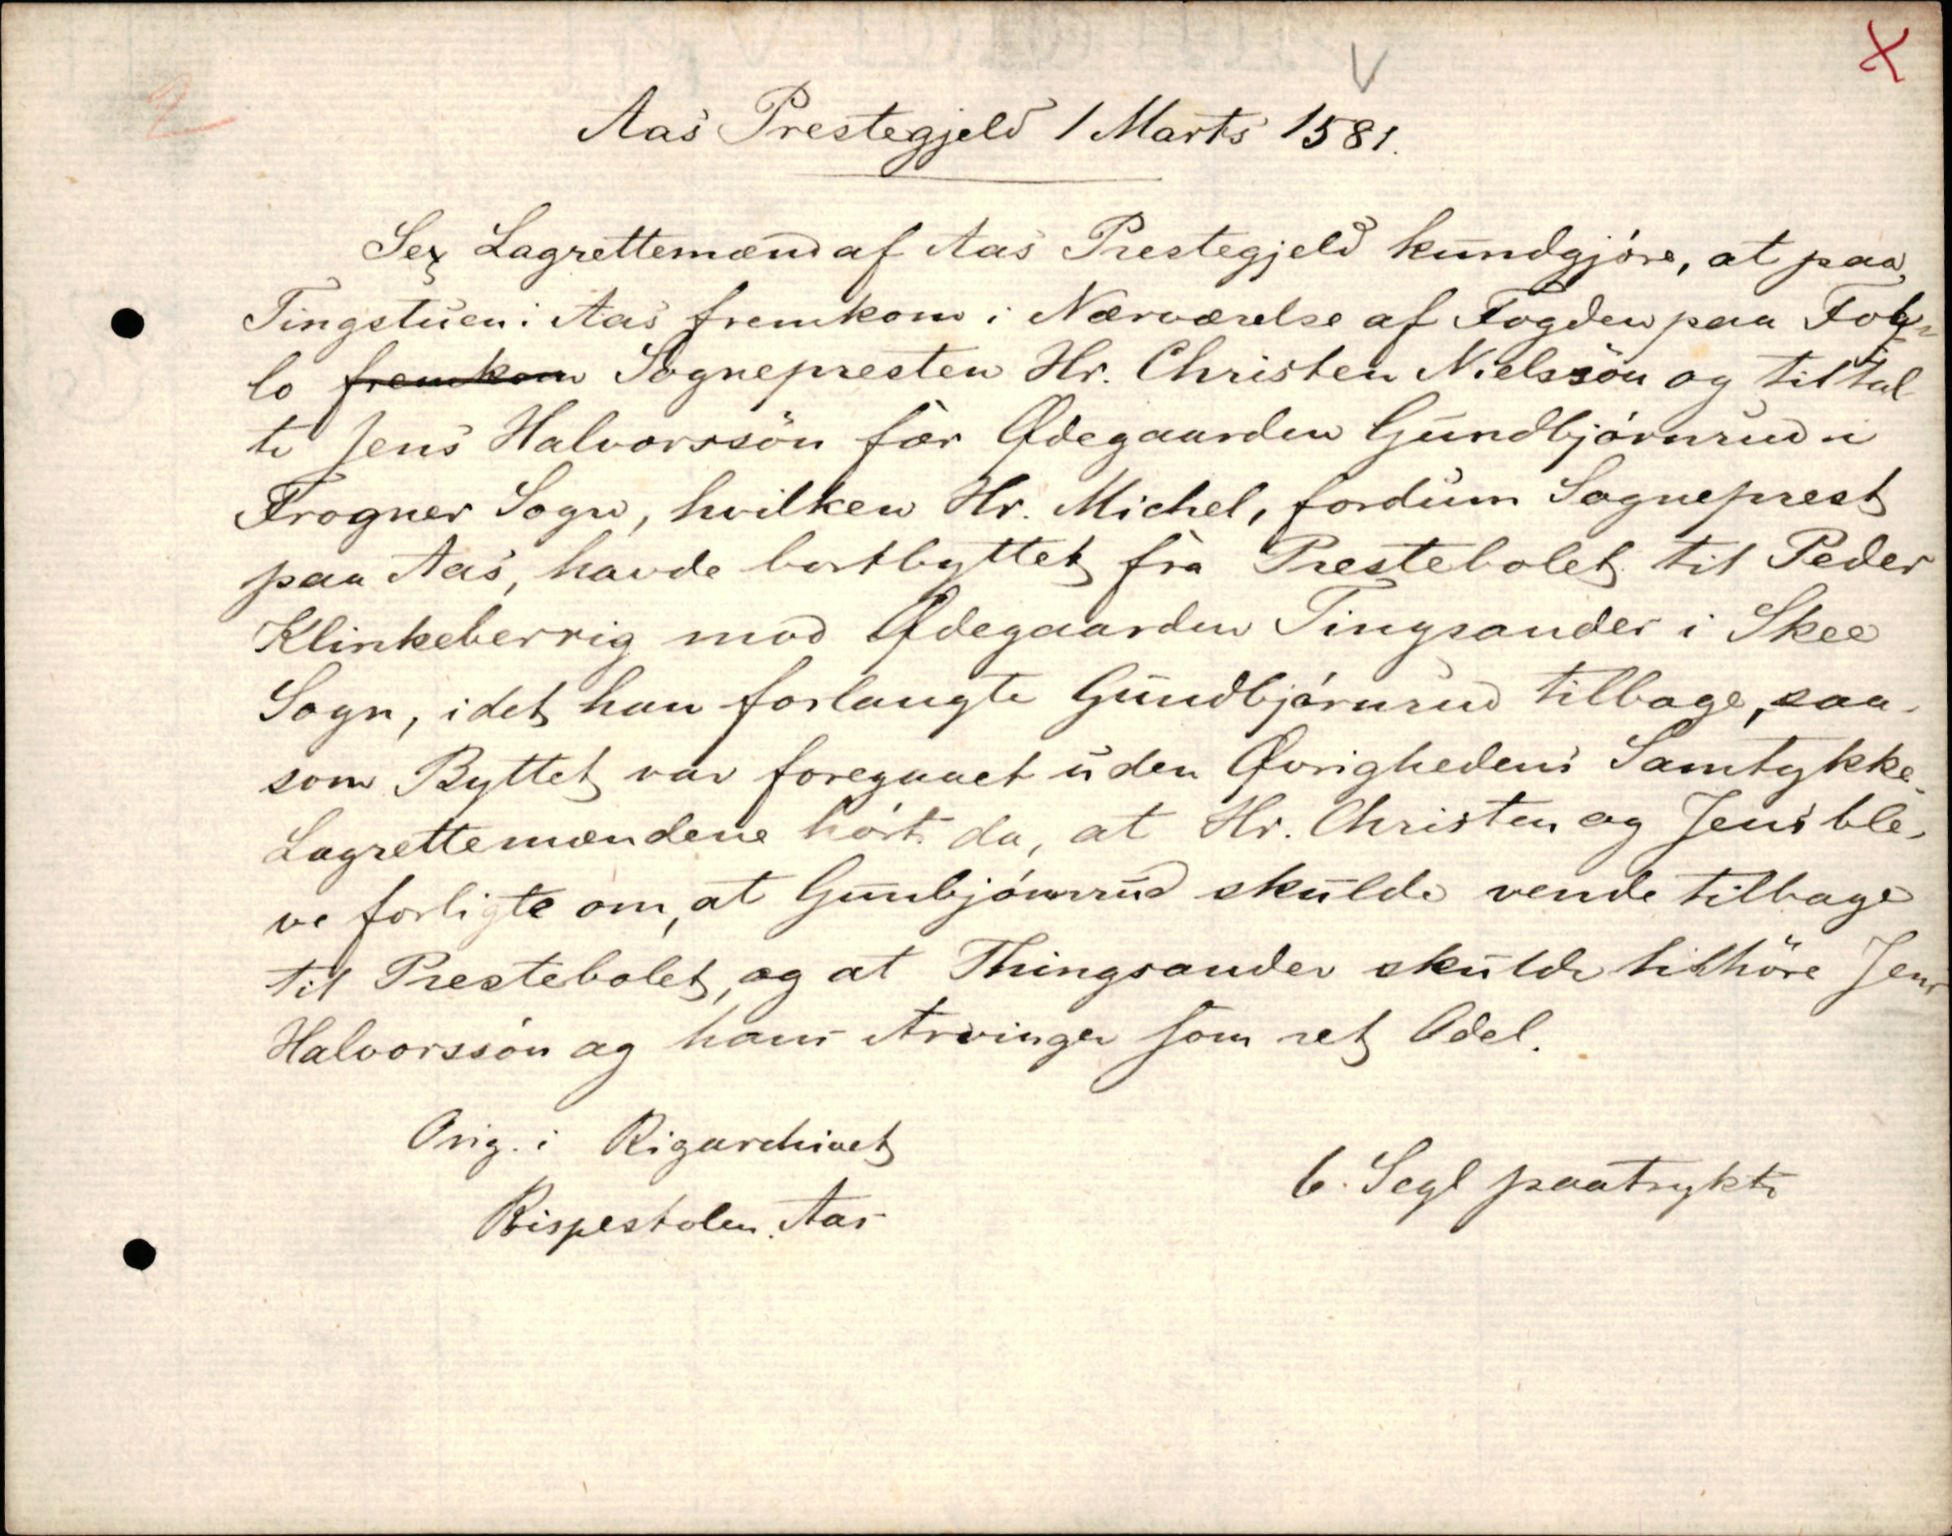 2
V
X
Aas Prestegjeld 1 Marts 1581.
Sex Lagrettemænd af Aas Prestegjeld kundgjøre, at paa
Tingstuen i Aas fremkom i Nærværelse af Fogden paa Fol-
lo fremkom Sognepresten Hr. Christen Nielssön og tiltal
te Jens Halvorssön for Ødegaarden Gundbjørnrud i
Frogner Sogn, hvilken Hr. Michel, fordum Sogneprest
paa Aas, havde bortbyttet fra Prestebolet til Peder
Klinkeberrig mod Ødegaarden Tingsander i Skee
Sogn, idet han forlangte Gundbjørnrud tilbage, saa-
som Byttet var foregaaet uden Øvrighedens Samtykke.
Lagrettemændene hørte da, at Hr. Christen og Jens ble-
ve forligte om, at Gunbjørnrud skulde vende tilbage
til Prestebolet, og at Thingsander skulde tilhöre Jens
Halvorssön og hans Arvinger som ret Odel.
Orig. i Rigarchivet
Bispestolen. Aas
6. Segl paatrykte